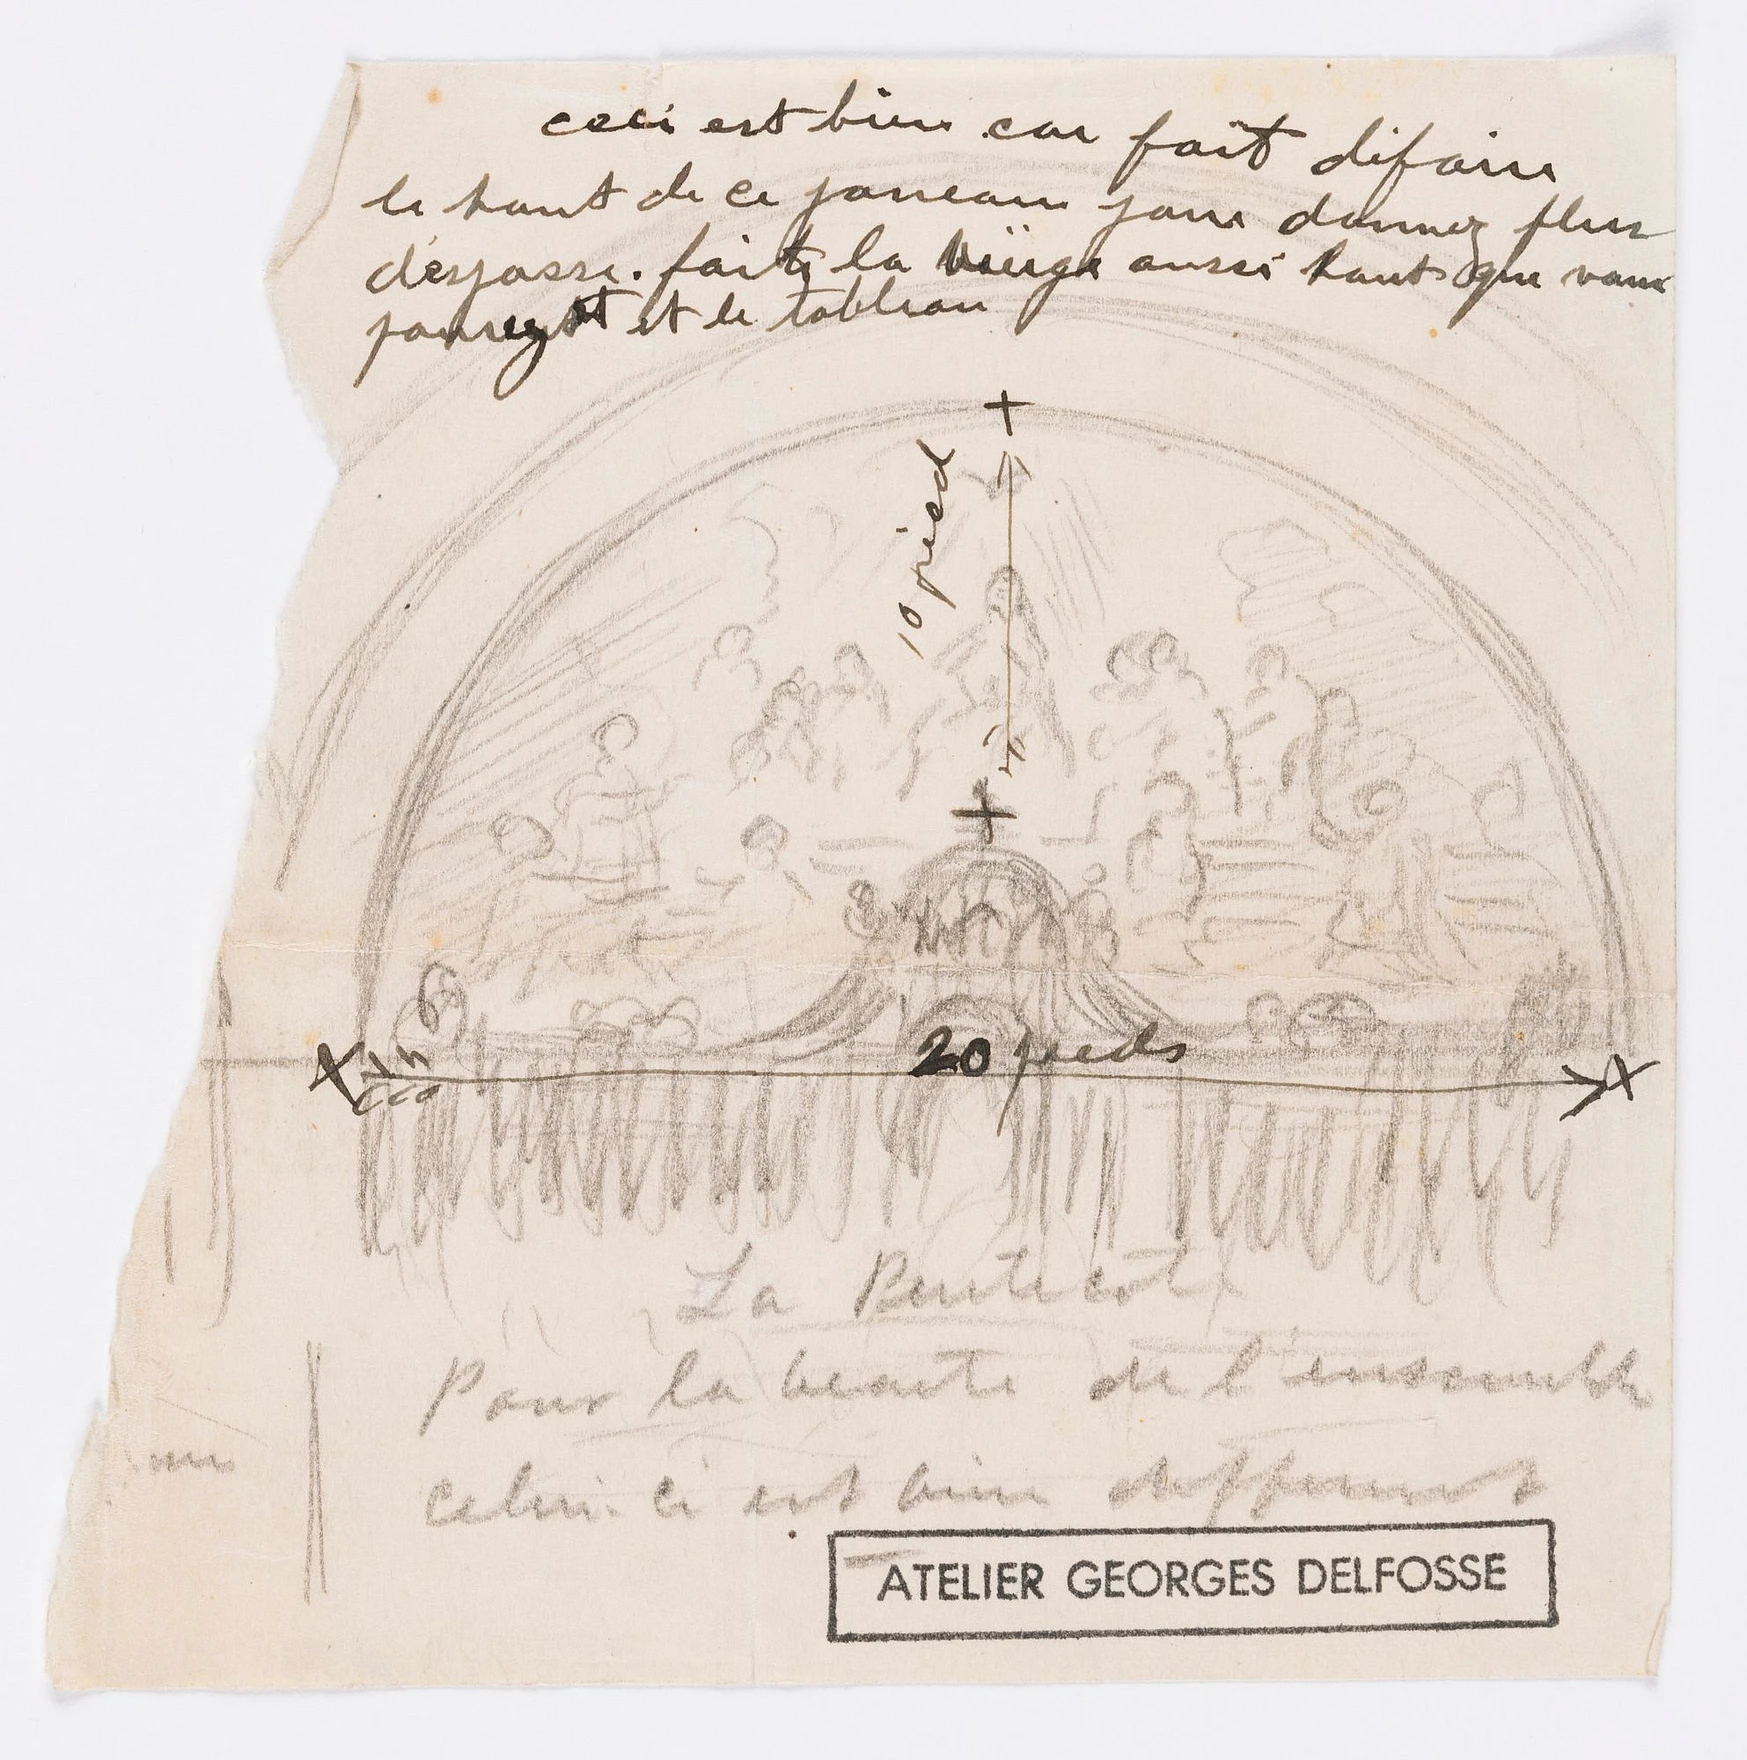 ceci est bien car fait difaire
le haut de ce panneau pour donnez plus
d'espasse. faite la vierge aussi haut que vous
pourez et le tableau
10 pied
20 pieds
La Pentecôte
Pour la beaute de l'ensemble
celui-ci est bien different
ATELIER GEORGES DELFOSSE